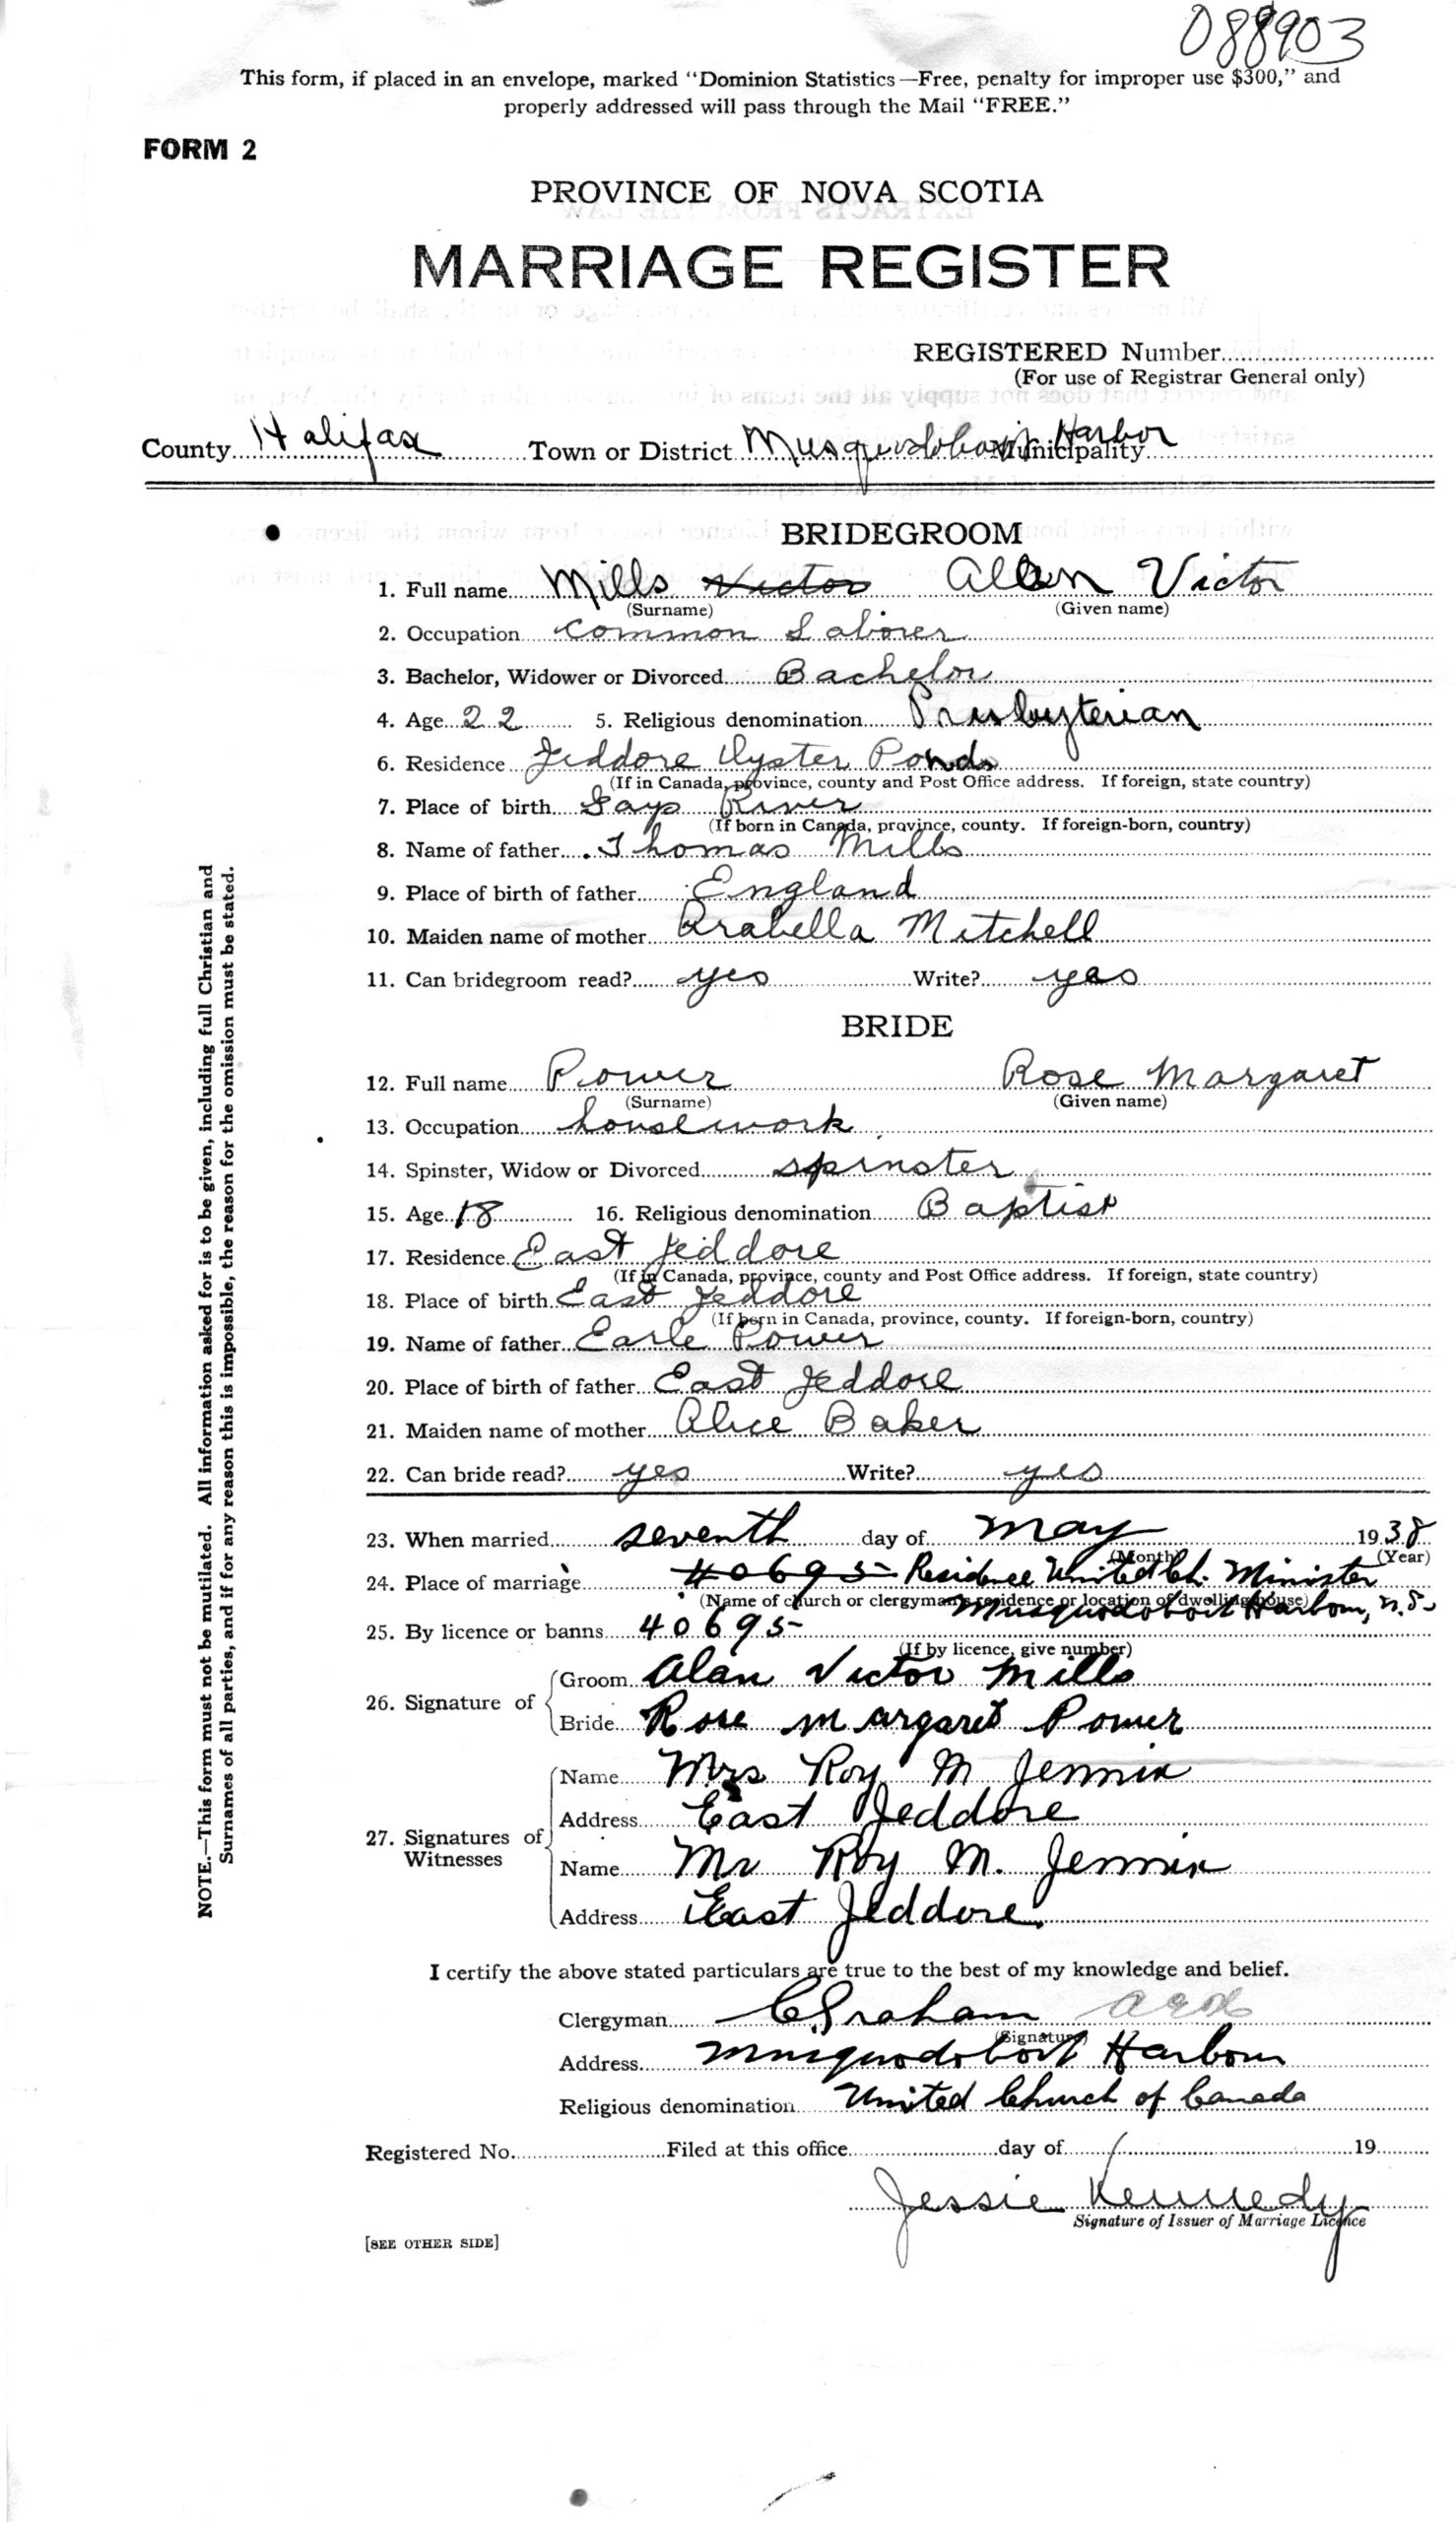 088903
This form, if placed in an envelope, marked "Dominion Statistics—Free, penalty for improper use $300," and
properly addressed will pass through the Mail "FREE."
FORM 2
PROVINCE OF NOVA SCOTIA
MARRIAGE REGISTER
REGISTERED Number
(For use of Registrar General only)
County Halifax Town or District Musquodoboit Harbor Municipality
BRIDEGROOM
1. Full name Mills Victor Allen Victor
(Surname) (Given name)
2. Occupation Common Laborer
3. Bachelor, Widower or Divorced Bachelor
4. Age 22 5. Religious denomination Presbyterian
6. Residence Jeddore Oyster Ponds
(If in Canada, province, county and Post Office address. If foreign, state country)
7. Place of birth Gays River
(If born in Canada, province, county. If foreign-born, country)
8. Name of father Thomas Mills
9. Place of birth of father England
10. Maiden name of mother Arabella Mitchell
11. Can bridegroom read? yes Write? yes
BRIDE
12. Full name Power Rose Margaret
(Surname) (Given name)
13. Occupation housework
14. Spinster, Widow or Divorced spinster
15. Age 18 16. Religious denomination Baptist
17. Residence East Jeddore
(If in Canada, province, county and Post Office address. If foreign, state country)
18. Place of birth East Jeddore
(If born in Canada, province, county. If foreign-born, country)
19. Name of father Earle Power
20. Place of birth of father East Jeddore
21. Maiden name of mother Alice Baker
22. Can bride read? yes Write? yes
23. When married seventh day of May 1938
(Month) (Year)
24. Place of marriage #0695 Residence United Ch. Minister
(Name of church or clergyman's residence or location of dwelling house) Musquodoboit Harbour, N.S.
25. By licence or banns 40695
(If by licence, give number)
26. Signature of
Groom Alan Victor Mills
Bride Rose Margaret Power
27. Signatures of Witnesses
Name Mrs Roy M Jennix
Address East Jeddore
Name Mr Roy M. Jennix
Address East Jeddore.
I certify the above stated particulars are true to the best of my knowledge and belief.
Clergyman C Graham
(Signature)
Address Musquodoboit Harbour
Religious denomination United Church of Canada
Registered No. Filed at this office day of 19
Jessie Kennedy
Signature of Issuer of Marriage Licence
[SEE OTHER SIDE]
NOTE.—This form must not be mutilated. All information asked for is to be given, including full Christian and
Surnames of all parties, and if for any reason this is impossible, the reason for the omission must be stated.